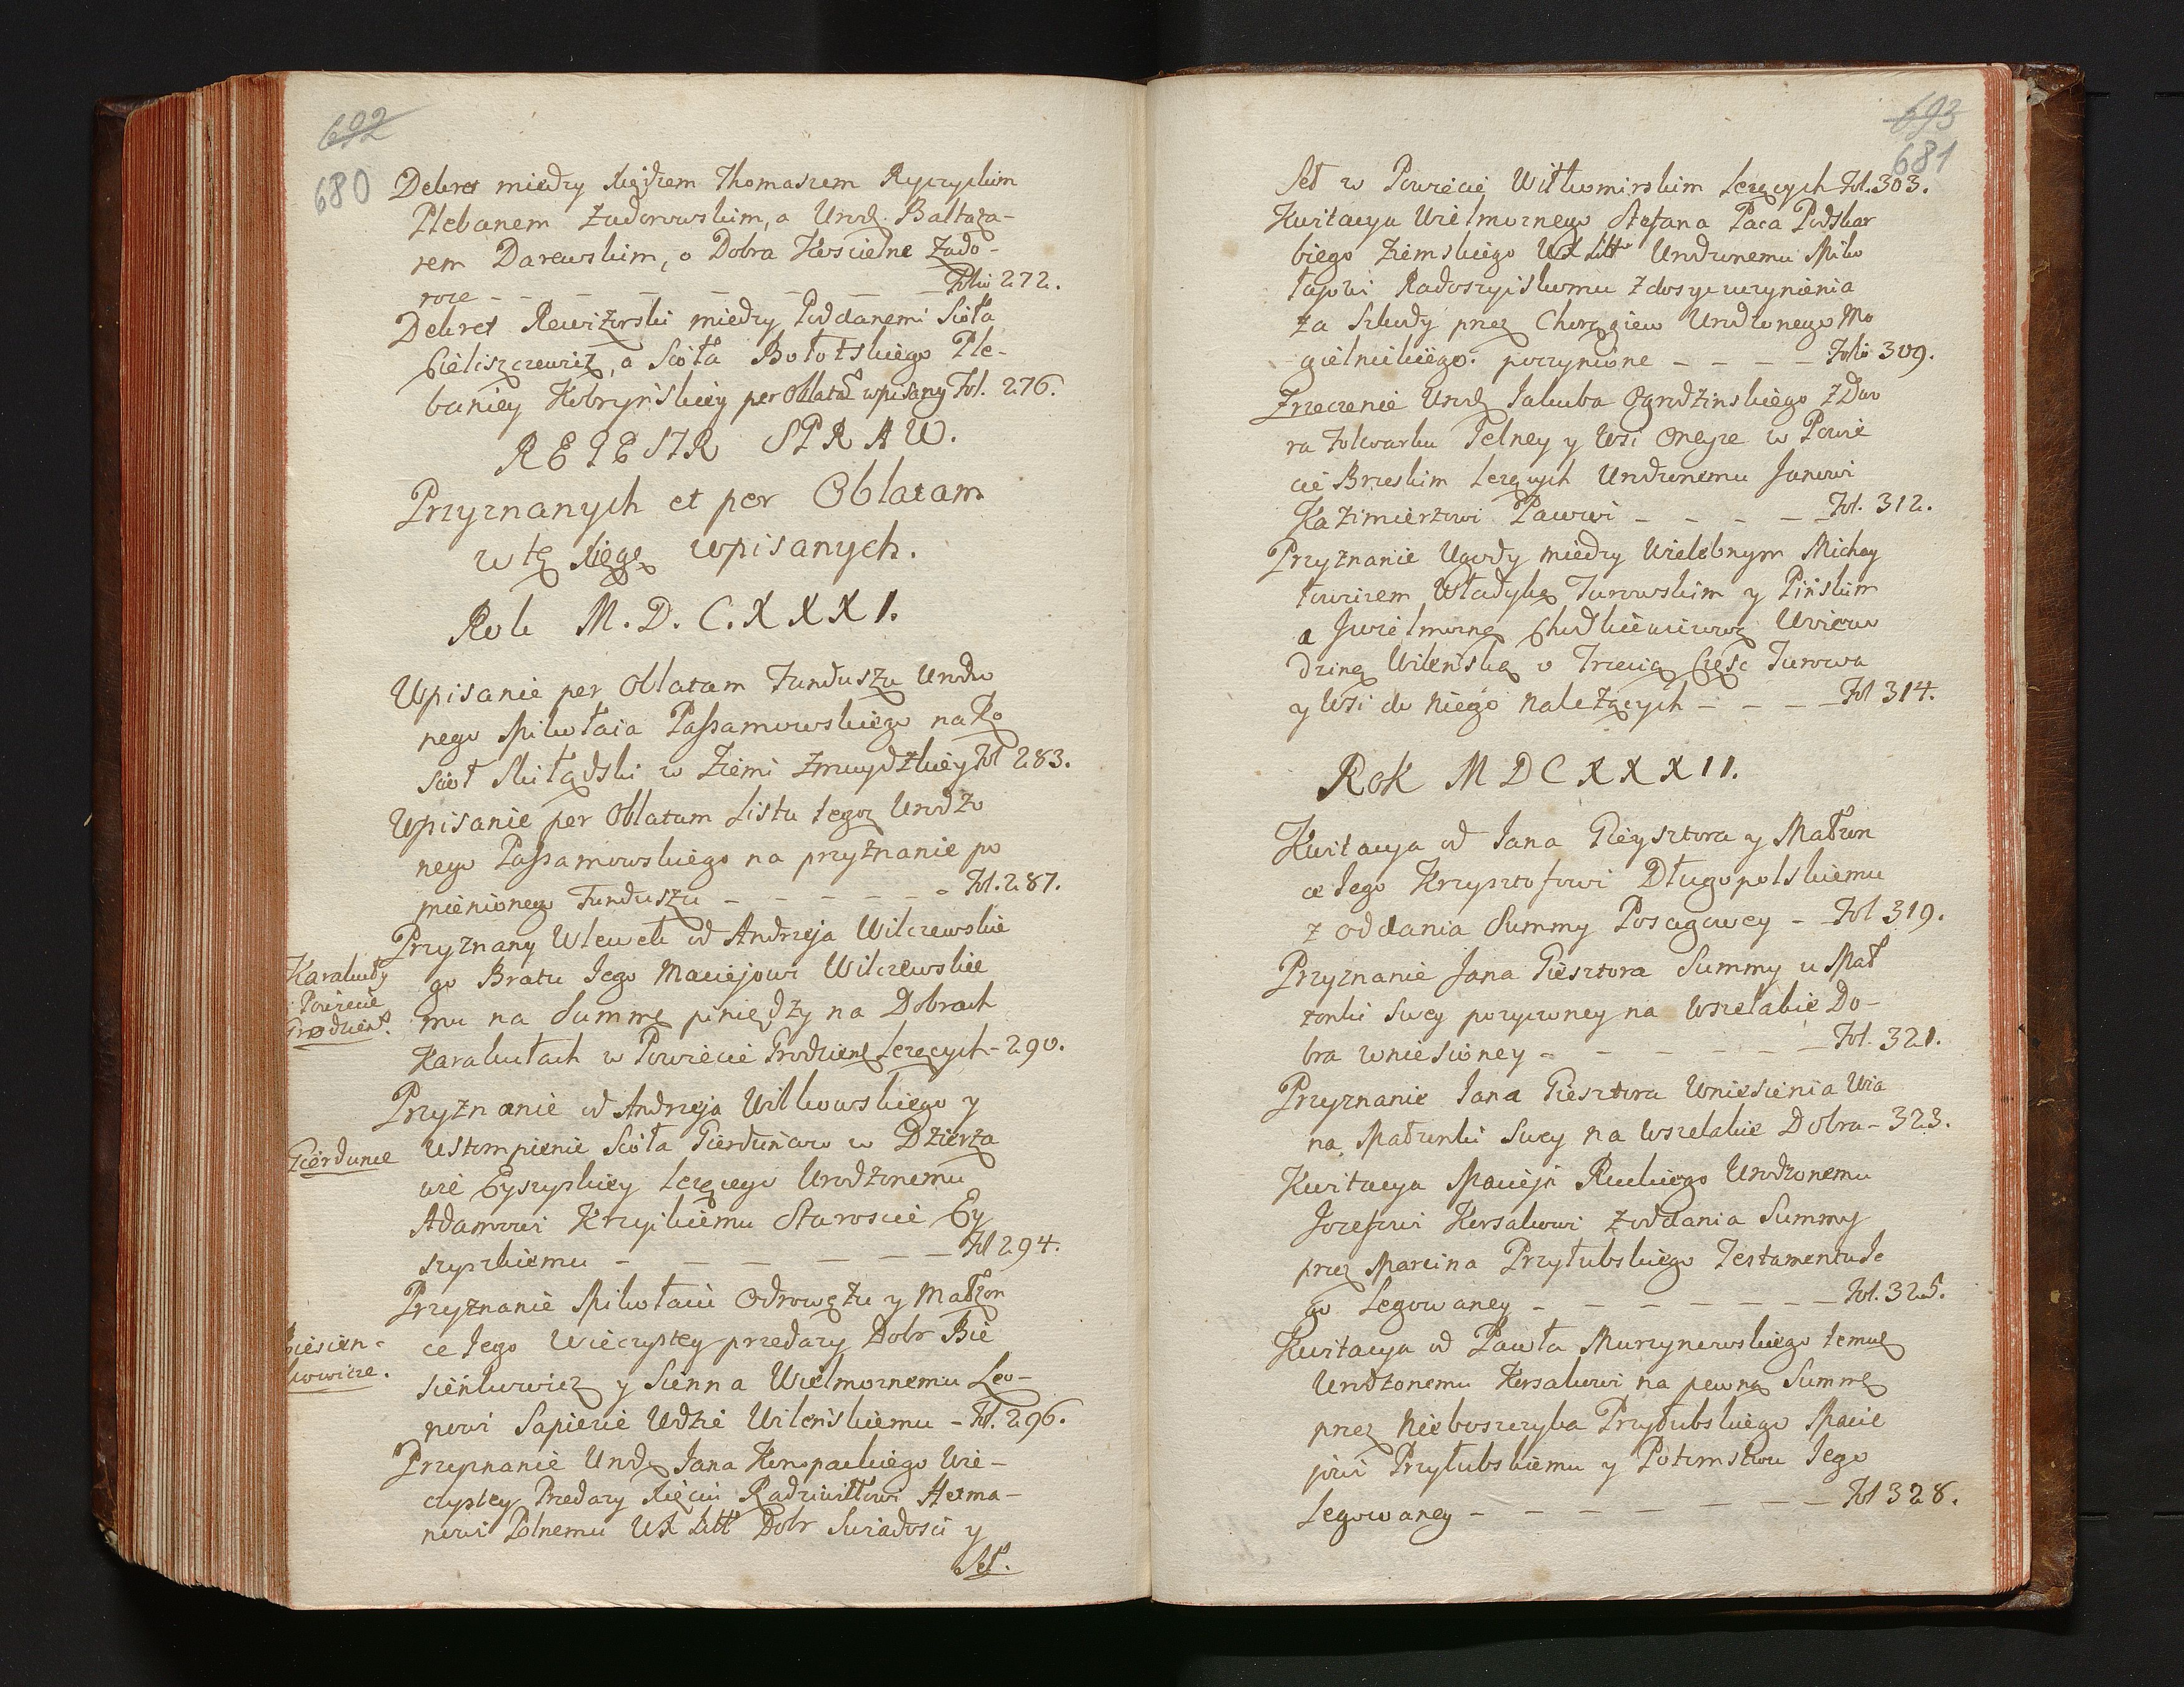 692
680
Dekret między Xiędzem Thomaszem Ryczyckim
Plebanem Zadorowskim, a Urodz. Baltaza-
rem Darewskim, o Dobra Kościelne Zado-
roże - - - - - - - Folio 272.
Dekret Rewizorski między Poddanemi Sioła
Cieliszczewicz, a Sioła Bołotskiego Ple-
baniey Kobryńskiey per Oblatam wpisany Fol. 276.
REJESTR SPRAW.
Przyznanych et per Oblatam
w tę xięgę wpisanych.
Rok M.D.C.XXXI.
Wpisanie per Oblatam Funduszu Urodzo
nego Mikołaia Passamowskiego na Ko
ścioł Skiłądzki w Ziemi Zmuydzkiey Fol 283.
Wpisanie per Oblatam Listu tegoz Urodzo
nego Passamowskiego na przyznanie po
mienionego Funduszu - - - - - Fol. 287.
Przyznany Wlewek od Andrzeja Wilczewskie
go Bratu Jego Maciejowi Wilczewskie
mu na Summę piniędzy na Dobrach
Karakułach w Powiecie Grodzień Leżących - 290.
Karakuły
Powiecie
Grodzień.
Przyznanie od Andrzeja Wilkowskiego y
Ustompienie Sioła Gierduńcow w Dzierza
wie Eyszyskiey Leżącego Urodzonemu
Adamowi Krzyckiemu Staroscie Ey
szyszkiemu - - - - - Fol 294.
Gierdunce
Przyznanie Mikołaiu Odrowążu y Małżon
ce Jego Wieczystey przedaży Dobr Bie
sieńkowicz y Sienna Wielmożnemu Leo-
nowi Sapiezie Wdzie Wileńskiemu - Fol. 296.
Biesien-
kowicze.
Przyznanie Urodz Jana Konopackiego Wie-
czystey Przedaży Xięciu Radziwiłłowi Hetma-
nowi Polnemu WX Litt Dobr Swiadosci y
Soł.
693
681
Soł w Powiecie Wiłkomirskim Leżących Fol. 303.
Kwitacya Wielmożnego Stefana Paca Podskar
biego Ziemskiego WX Litt Urodzonemu Miko
łajowi Radoszyiskomu z dosyć uczynienia
za Szkody przez Chorągiew Urodzonego Mo
gielnickiego. poczynione - - - - Folio 309.
Zrzeczenie Urodz Jakuba Ogrodzinskiego z Dwo
ra Folwarku Pelney y Wsi Oneyze w Powie
cie Brzeskim Leżących Urodzonemu Janowi
Kazimierzowi Pacowi - - - - - Fol. 312.
Przyznanie Ugody między Wielebnym Michay
łowiczem Władyką Turowskim y Pińskim
a Jwielmożną Chodkiewiczową Woiewo
dziną Wileńską o Trzecią Część Turowa
y Wsi do niego należących - - - - Fol 314.
Rok MDCXXXII.
Kwitacya od Jana Gieysztora y Małżon
ce Jego Krzysztofowi Długopolskiemu
z oddania Summy Posagowey - Fol 319.
Przyznanie Jana Giesztora Summy u Małż
żonki Swey pożyczoney na Wszelakie Do-
bra wniesioney - - - - - - Fol. 321.
Przyznanie Jana Giesztora Wniesienia Wia
na, Małżonki Swey na Wszelakie Dobra - 323.
Kwitacya Macieja Ruckiego Urodzonemu
Jozefowi Korsakowi z oddania Summy
przez Marcina Przyłubskiego Testamentu Je
go Legowaney - - - - - - - Fol. 325.
Kwitacya od Pawła Murzynowskiego temuż
Urodzonemu Korsakowi na pewną Summę
przez Nieboszczyka Przyłubskiego Macie
jowi Przyłubskiemu y Potomstwu Jego
Legowaney - - - - - - - Fol 328.